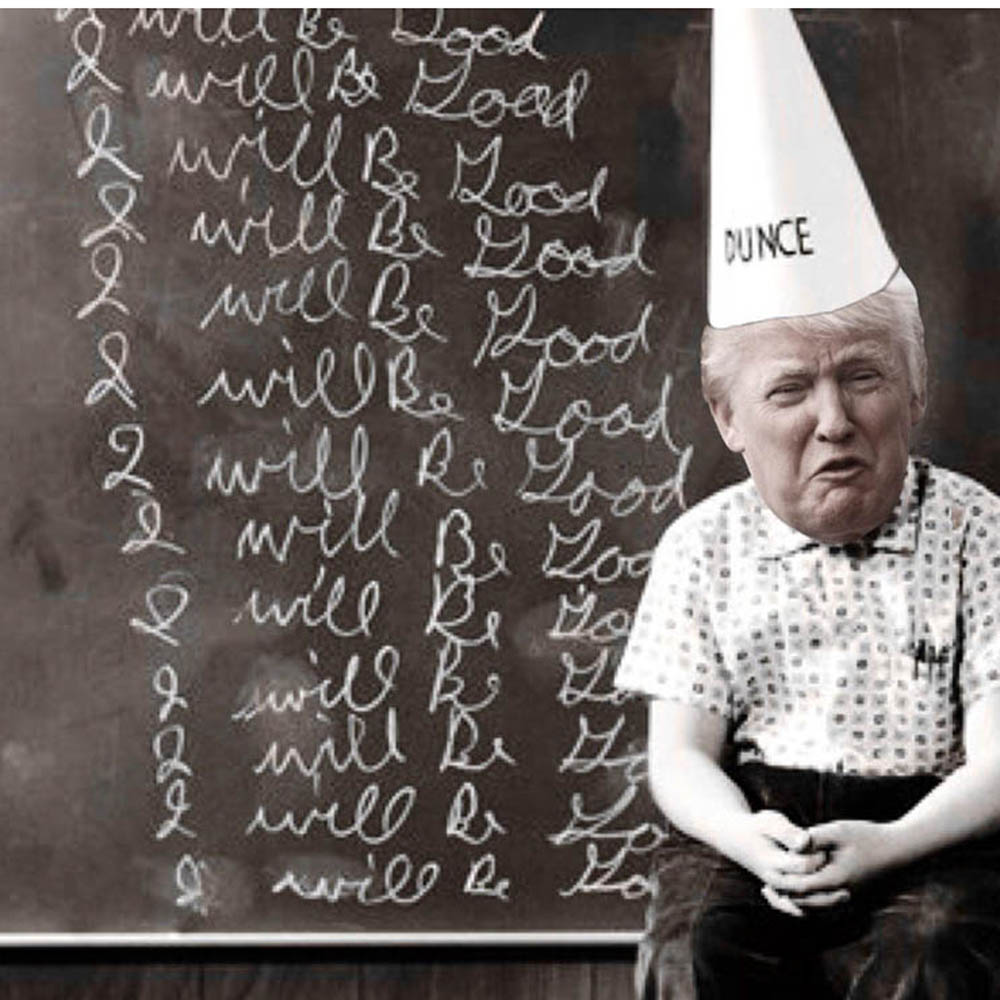 I will Be Good
I will Be Good
I will Be Good
I will Be Good
I will Be Good
I will Be Good
I will Be Good
I will Be Goo
I will Be Go
I will Be Go
I will Be Go
I will Be Go
I will Be Go
DUNCE